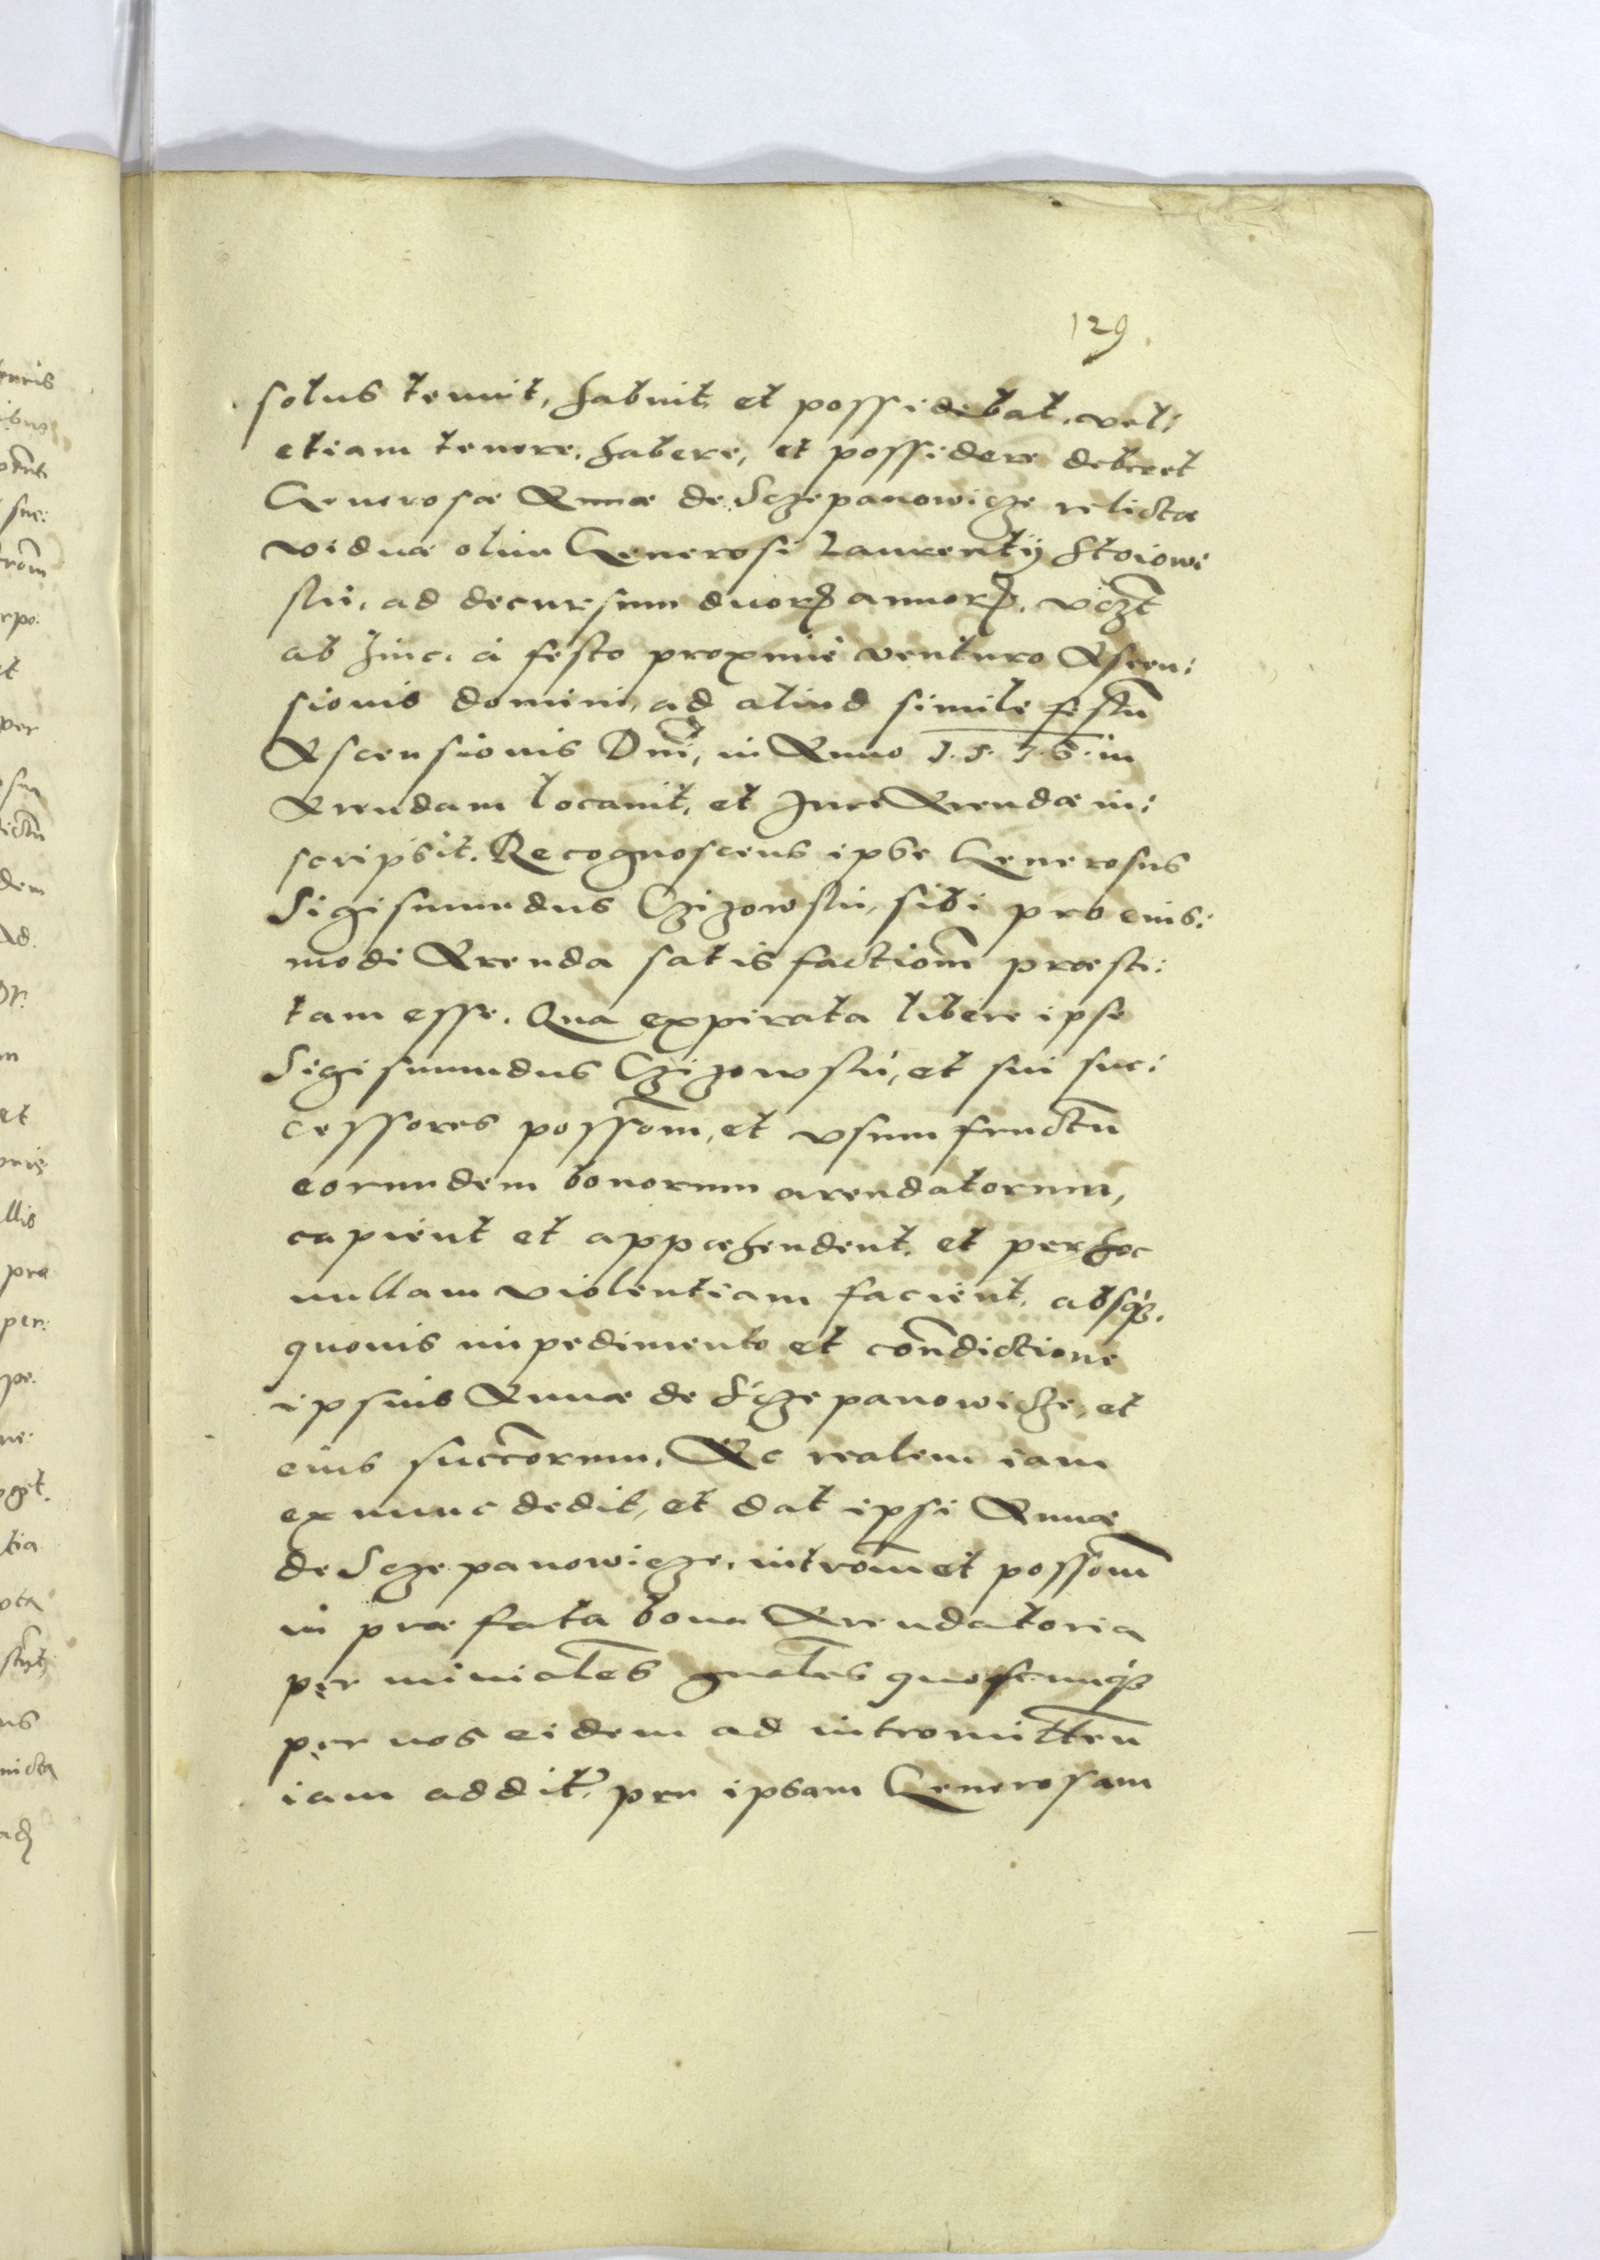 129.
solus tenuit, habuit et possidebat, vel:
etiam tenere, habere, et possidere deberet
Generosæ Annæ de Sczepanowicze relictæ
viduæ olim Generosi Laurentÿ Stoiow:
skii, ad decursum duorꝝ annorꝝ, vczt
ab hinc, à festo proxime venturo Ascen:
sionis domini, ad aliud simile festū
Ascensionis Dnī, in Anno 1.5.7.8. in
Arendam locauit, et Jure Arendæ in:
scripsit. Recognoscens ipse Generosus
Sigismundus Czizowskii, sibi pro eius:
modi Arenda satisfactiom̄ præsti:
tam esse. Qua expirata libere ipse
Sigismundus Czizowskii, et sui suc:
cessores possom̄, et vsumfructū
eorundem bonorum arendatorum,
capient et appræhendent, et per hoc
nullam violentiam facient, absqꝫ.
quouis impedimento et con̄dictione
ipsius Annæ de Sczepanowicze, et
eius succ̄orum, Ac realem iam
ex nunc dedit, et dat ipsi Annæ
de Sczepanowicze, introm̄ et possom̄
in præfata bona Arendatoria
per minialēs gnalēs quoscunqꝫ
per nos eidem ad intromitten̄
iam addit̄, per ipsam Generosam